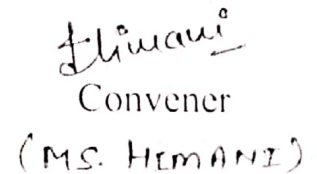 Himani
Convener
(MS. HIMANI)